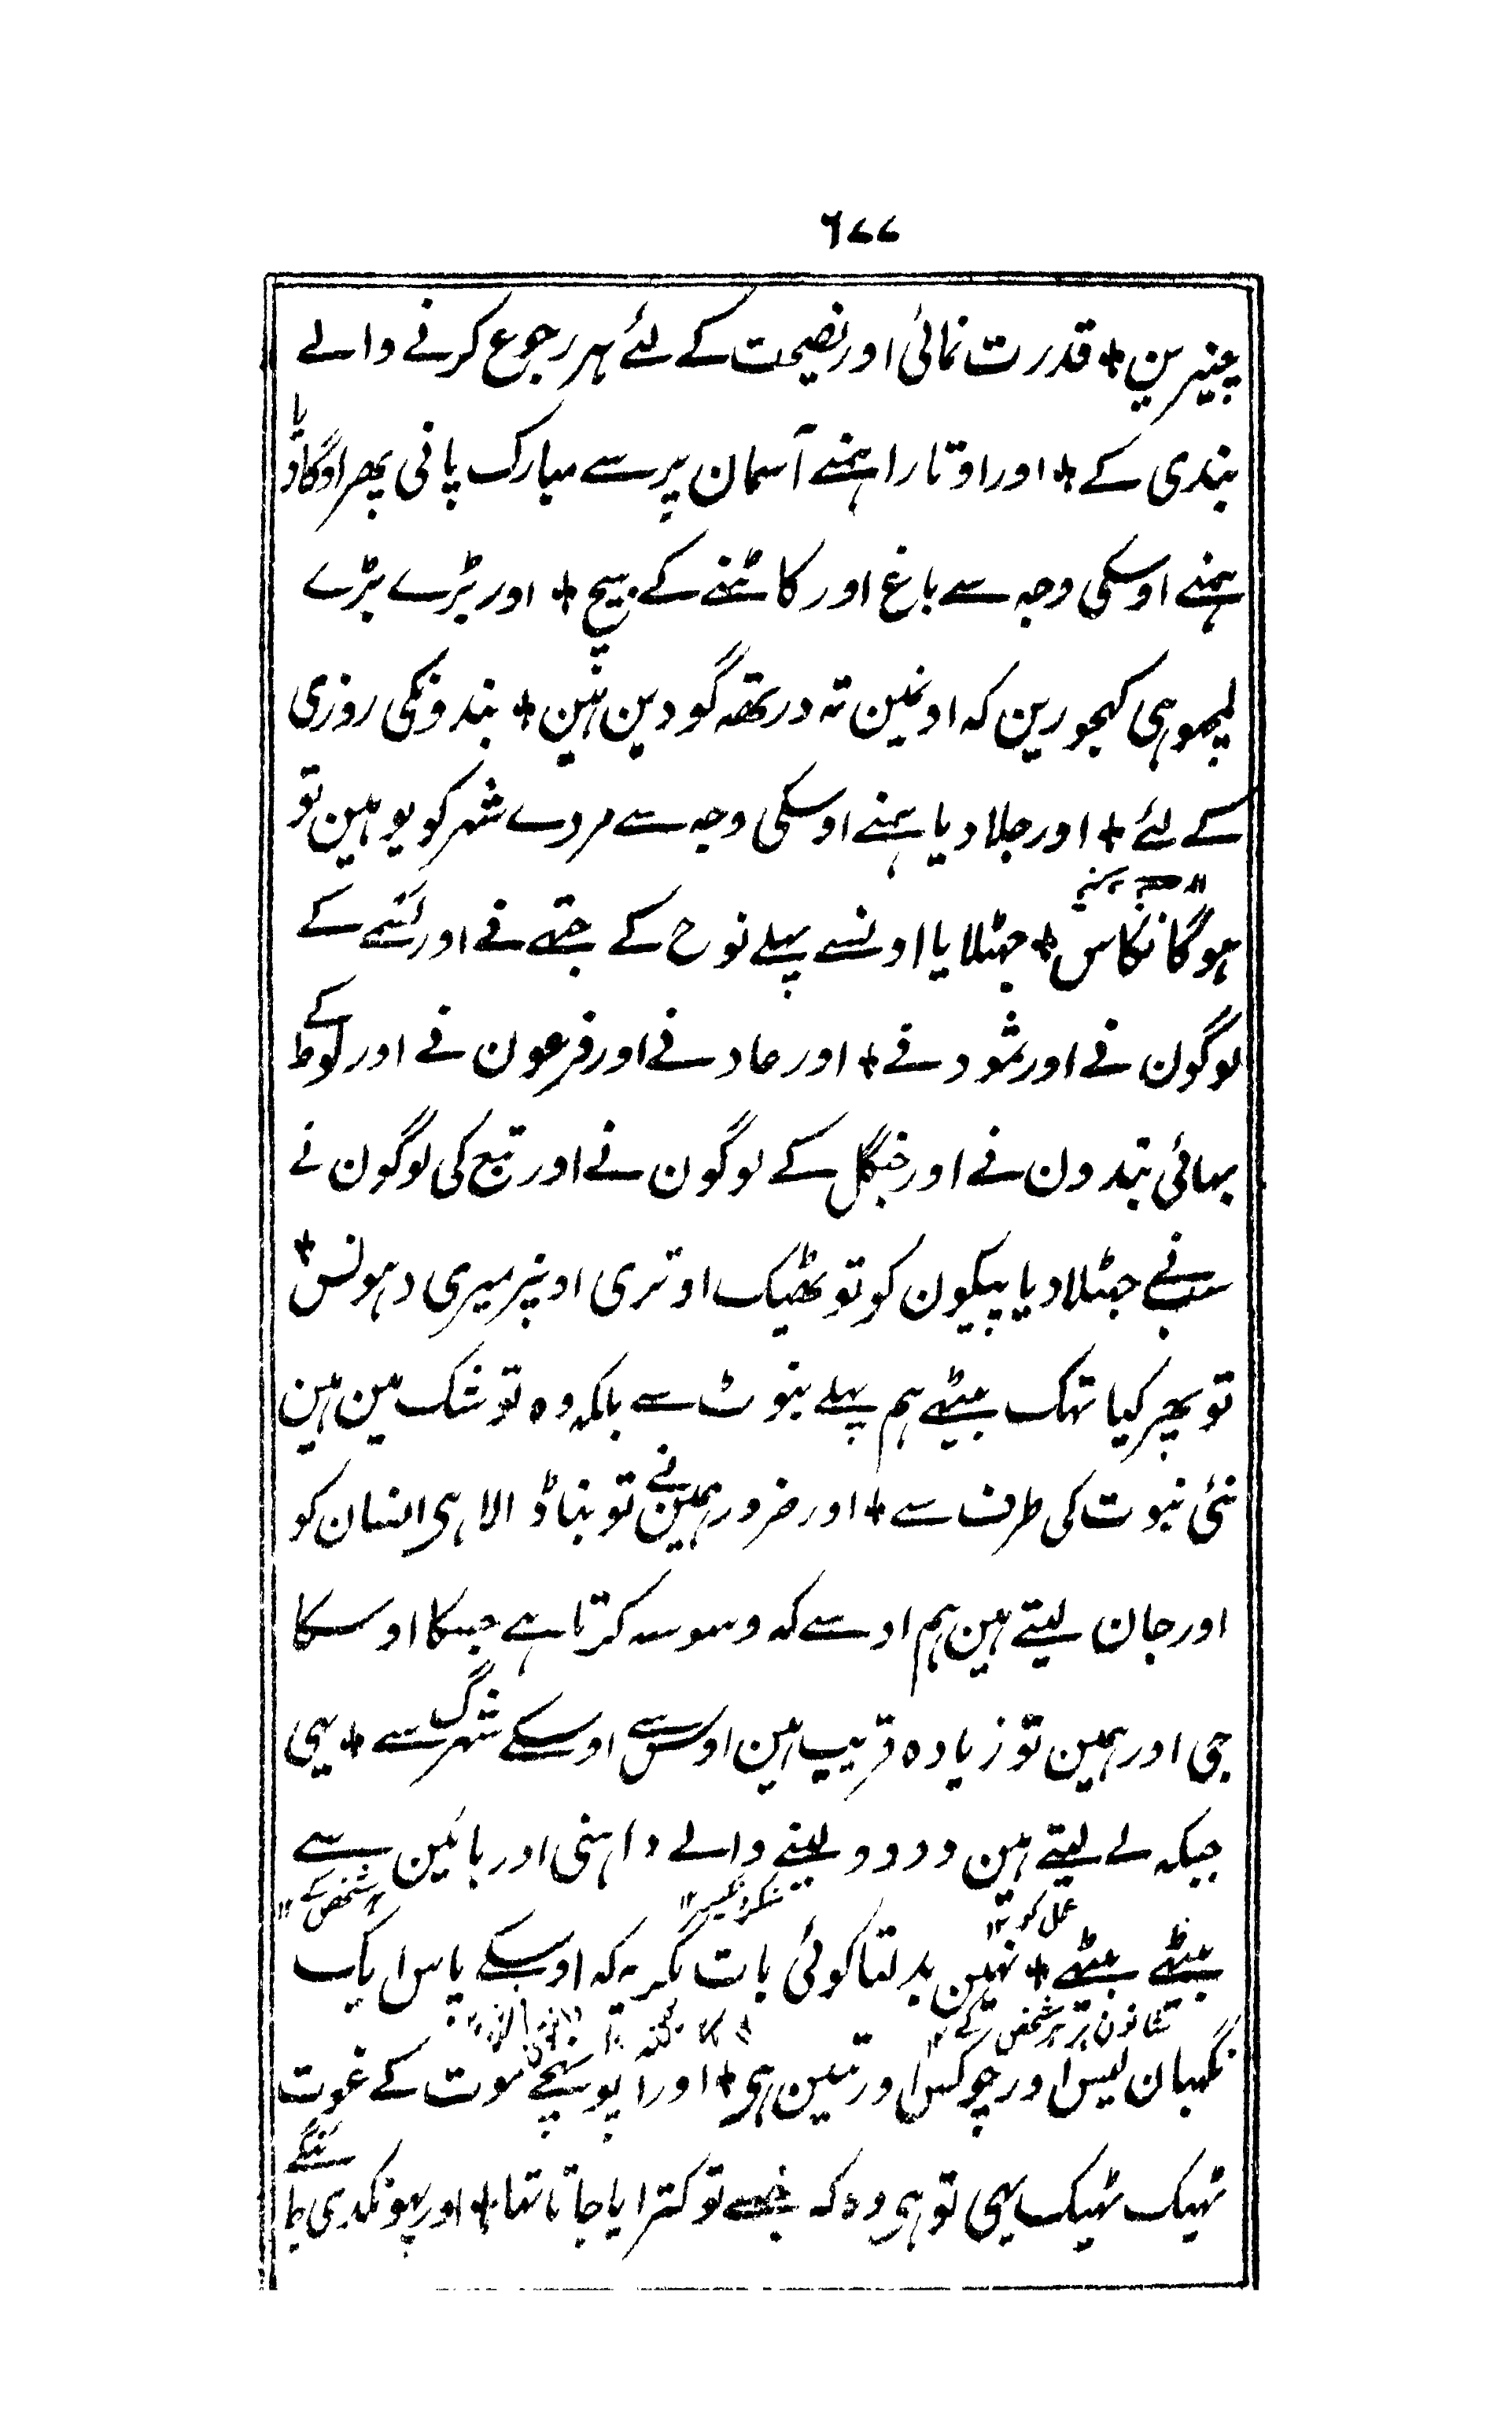 ٦٧٧
چیزین + قدرت نمائی اور نصیحت کے لئے ہر رجوع کرنے والے
بندی کے + اور اوتارا ہمنے آسمان پر سے مبارک پانی پھر اوگادیا
ہمنے اوسکی وجہ سے باغ اور کاٹنے کے بیج + اور بڑے بڑے
لیچھوہی کھجورین کہ اونمین تہ در تھہ گودین ہین + بندونکی روزی
کے لئے + اور جلا دیا ہمنے اوسکی وجہ سے مردے شہر کو یوہین تو
ہوگا نکاس + جہٹلایا اونسے پہلے نوح کے جتھے نے اور کنئے کے
لوگون نے اور ثمود نے + اور عاد نے اور فرعون نے اور لوط کے
بھائی بندون نے اور جنگل کے لوگون نے اور تبع کی لوگون نے
سبنے جھٹلا دیا پیکون کو تو ٹھیک اوتری اونپر میری دہونس +
تو پھر کیا تھک بیٹھے ہم پہلے بنوٹ سے بلکہ وہ تو شک مین ہین
نئی نبوت کی طرف سے + اور ضرور ہمین نے تو بنا ڈالا ہی انسان کو
اور جان لیتے ہین ہم اوسے کہ وسوسہ کرتا ہے جسکا اوسکا
جی اور ہمین تو زیادہ قریب ہین اوس سے اوسکے شہرگ سے + یہی
جبکہ لے لیتے ہین دو دو لینے والے داہنی اور بائین سے
عمل کو ١٢ منکر نکیر ١٢ شخص کے ١٢
بیٹھے بیٹھے + نہین بدلتا کوئی بات مگر یہ کہ اوسکے پاس ایک
نگہبان لیس اور چوکس اور تمین ہی + اور آ پوہنچے موت کے غوت
ٹہیک ٹہیک یہی تو ہی وہ کہ جسے تو کترایا جاتا تھا + اور پھونکدی جائینگے